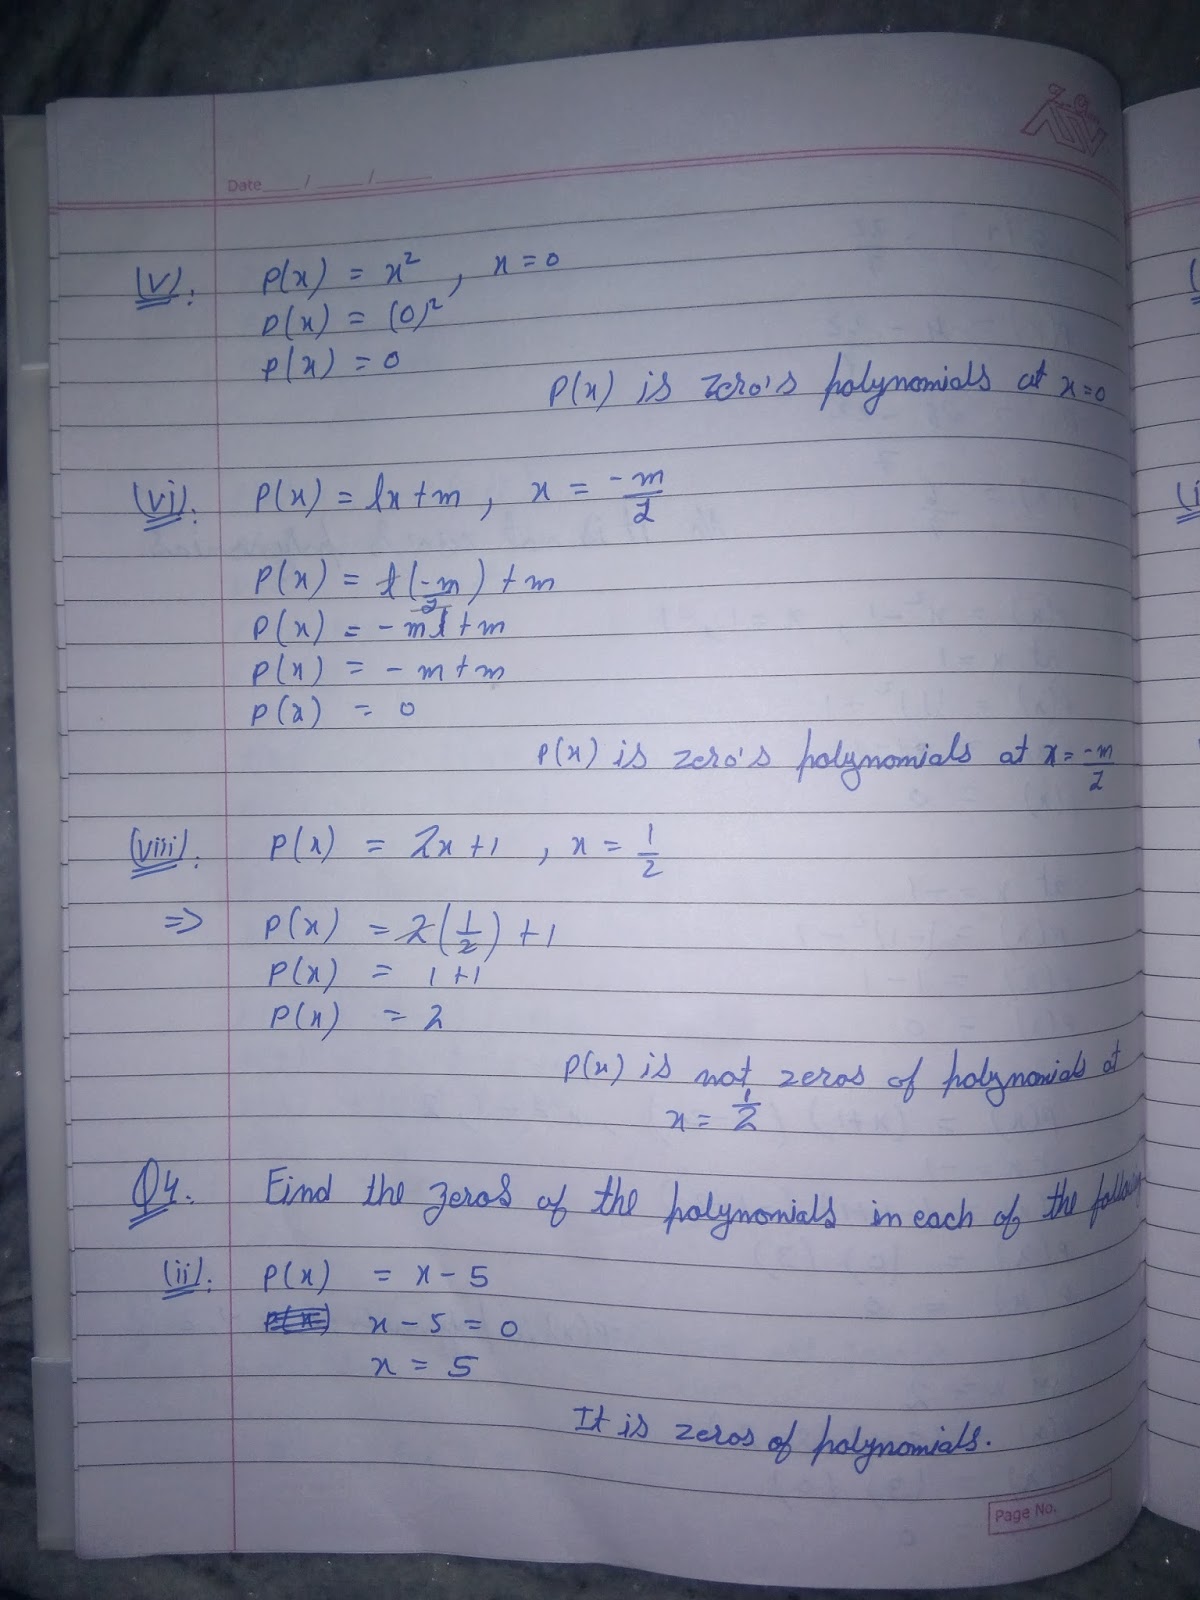 Date / /
(v). P(x) = x² , x = 0
P(x) = (0)²
P(x) = 0
P(x) is zero's polynomials at x=0
(vi). P(x) = lx + m , x = -m/l
P(x) = l(-m/l) + m
P(x) = - ml + m
P(x) = - m + m
P(x) = 0
P(x) is zero's polynomials at x = -m/l
(viii). P(x) = 2x + 1 , x = 1/2
=> P(x) = 2(1/2) + 1
P(x) = 1 + 1
P(x) = 2
P(x) is not zeros of polynomials at
x = 1/2
Q4. Find the zeros of the polynomials in each of the following
(ii). P(x) = x - 5
x - 5 = 0
x = 5
It is zeros of polynomials.
Page No.